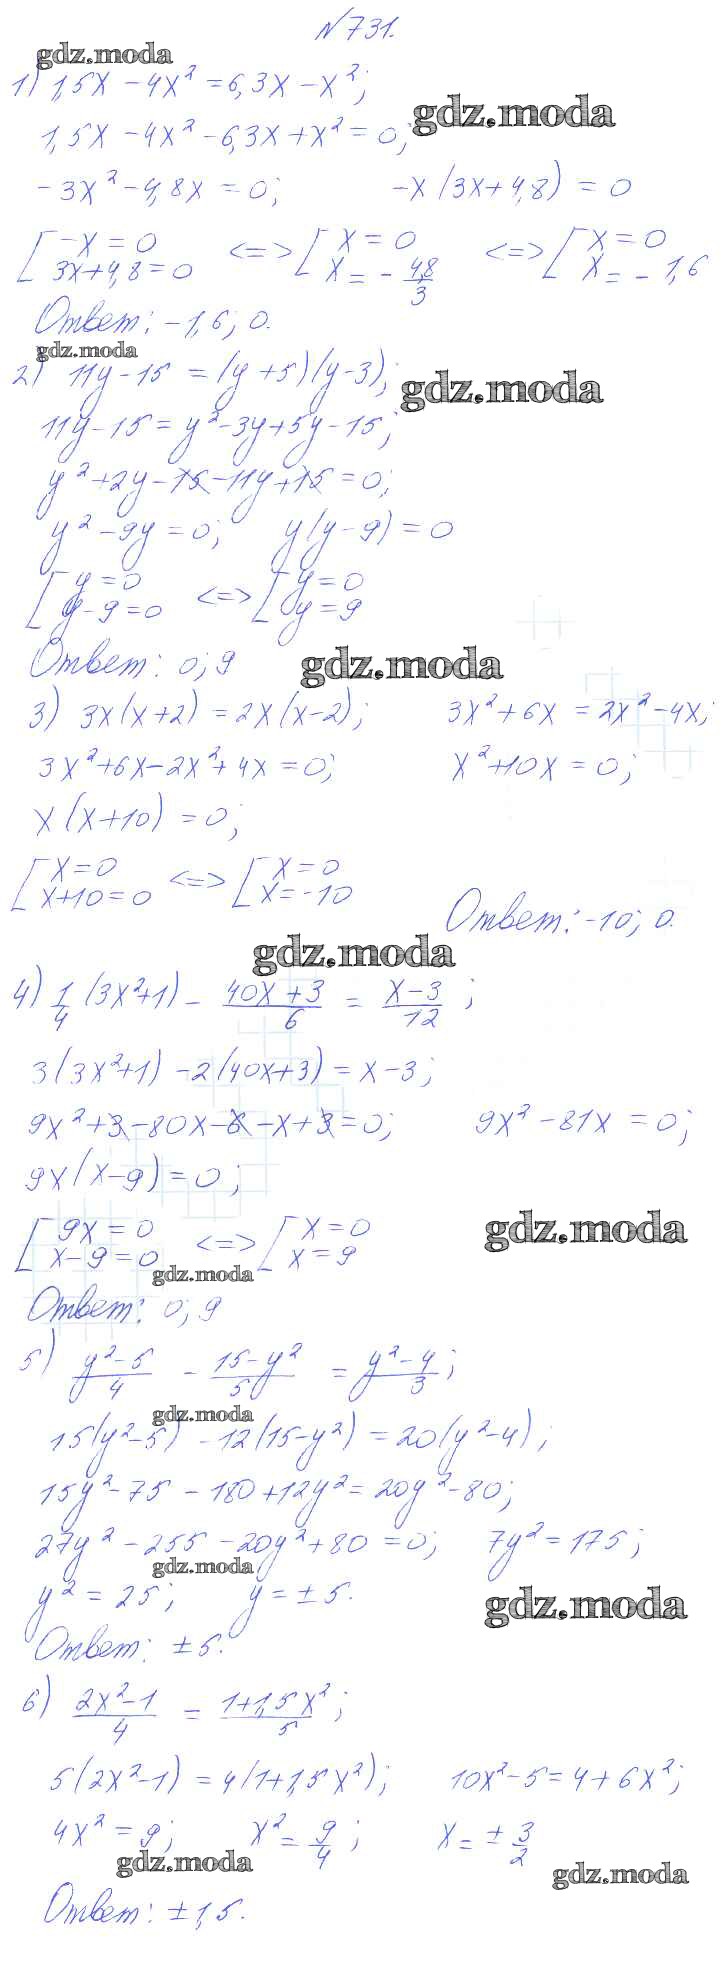 №731.
gdz.moda
1) 1,5x - 4x² = 6,3x - x²;
gdz.moda
1,5x - 4x² - 6,3x + x² = 0;
-3x² - 4,8x = 0; -x(3x+4,8) = 0
[ -x = 0 <=> [ x = 0 <=> [ x = 0
3x+4,8 = 0 x = - 4,8/3 x = - 1,6
Ответ: -1,6; 0.
gdz.moda
2) 11y - 15 = (y+5)(y-3);
gdz.moda
11y - 15 = y² - 3y + 5y - 15;
y² + 2y - 15 - 11y + 15 = 0;
y² - 9y = 0; y(y-9) = 0
[ y = 0 <=> [ y = 0
y - 9 = 0 y = 9
Ответ: 0; 9
gdz.moda
3) 3x(x+2) = 2x(x-2); 3x² + 6x = 2x² - 4x;
3x² + 6x - 2x² + 4x = 0; x² + 10x = 0;
x(x+10) = 0;
[ x = 0 <=> [ x = 0
x+10 = 0 x = -10
Ответ: -10; 0.
gdz.moda
4) 1/4 (3x²+1) - (40x+3)/6 = (x-3)/12;
3(3x²+1) - 2(40x+3) = x - 3;
9x² + 3 - 80x - 6 - x + 3 = 0; 9x² - 81x = 0;
9x(x-9) = 0;
gdz.moda
[ 9x = 0 <=> [ x = 0
x - 9 = 0 x = 9
gdz.moda
Ответ: 0; 9
5) (y²-5)/4 - (15-y²)/5 = (y²-4)/3;
gdz.moda
15(y²-5) - 12(15-y²) = 20(y²-4);
15y² - 75 - 180 + 12y² = 20y² - 80;
27y² - 255 - 20y² + 80 = 0; 7y² = 175;
gdz.moda
y² = 25; y = ± 5.
gdz.moda
Ответ: ± 5.
6) (2x²-1)/4 = (1+1,5x²)/5;
5(2x²-1) = 4(1+1,5x²); 10x² - 5 = 4 + 6x²;
4x² = 9; x² = 9/4; x = ± 3/2
gdz.moda
gdz.moda
Ответ: ± 1,5.